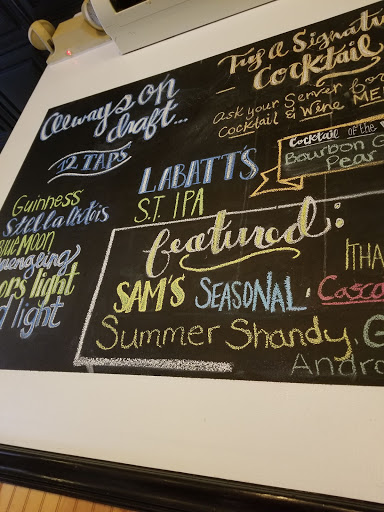 Always on
draft...
12 TAPS
Guinness
Stella Artois
Blue Moon
light
light
LABATT'S
S.T. IPA
Try A Signature
Cocktail
Ask your Server for
Cocktail & Wine MEN
Cocktail of the
Bourbon
Pear
featured:
SAM'S SEASONAL,
Summer Shandy,